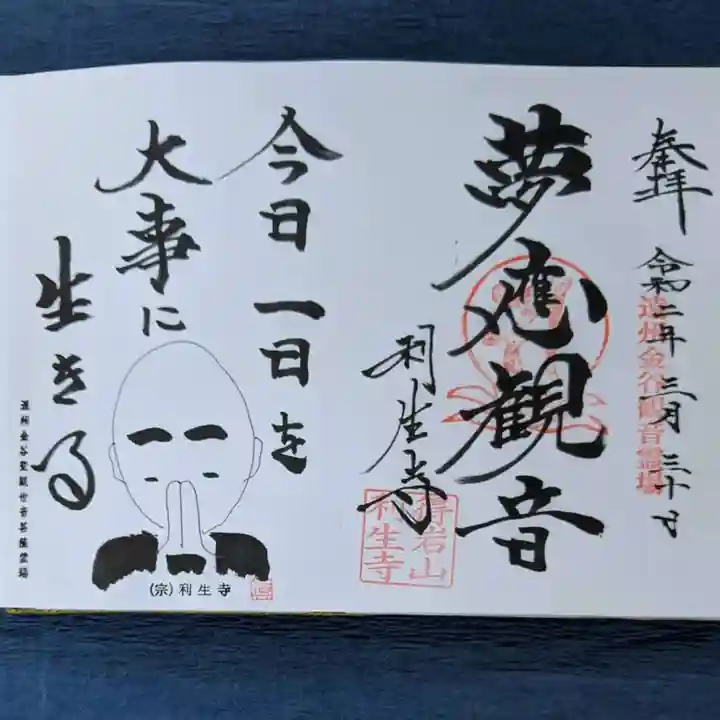 奉拝
令和二年三月三十日
遠州金谷観音霊場
夢應観音
利生寺
得岩山
利生寺
今日一日を
大事に
生きる
遠州金谷聖観世音菩薩霊場
(宗)利生寺